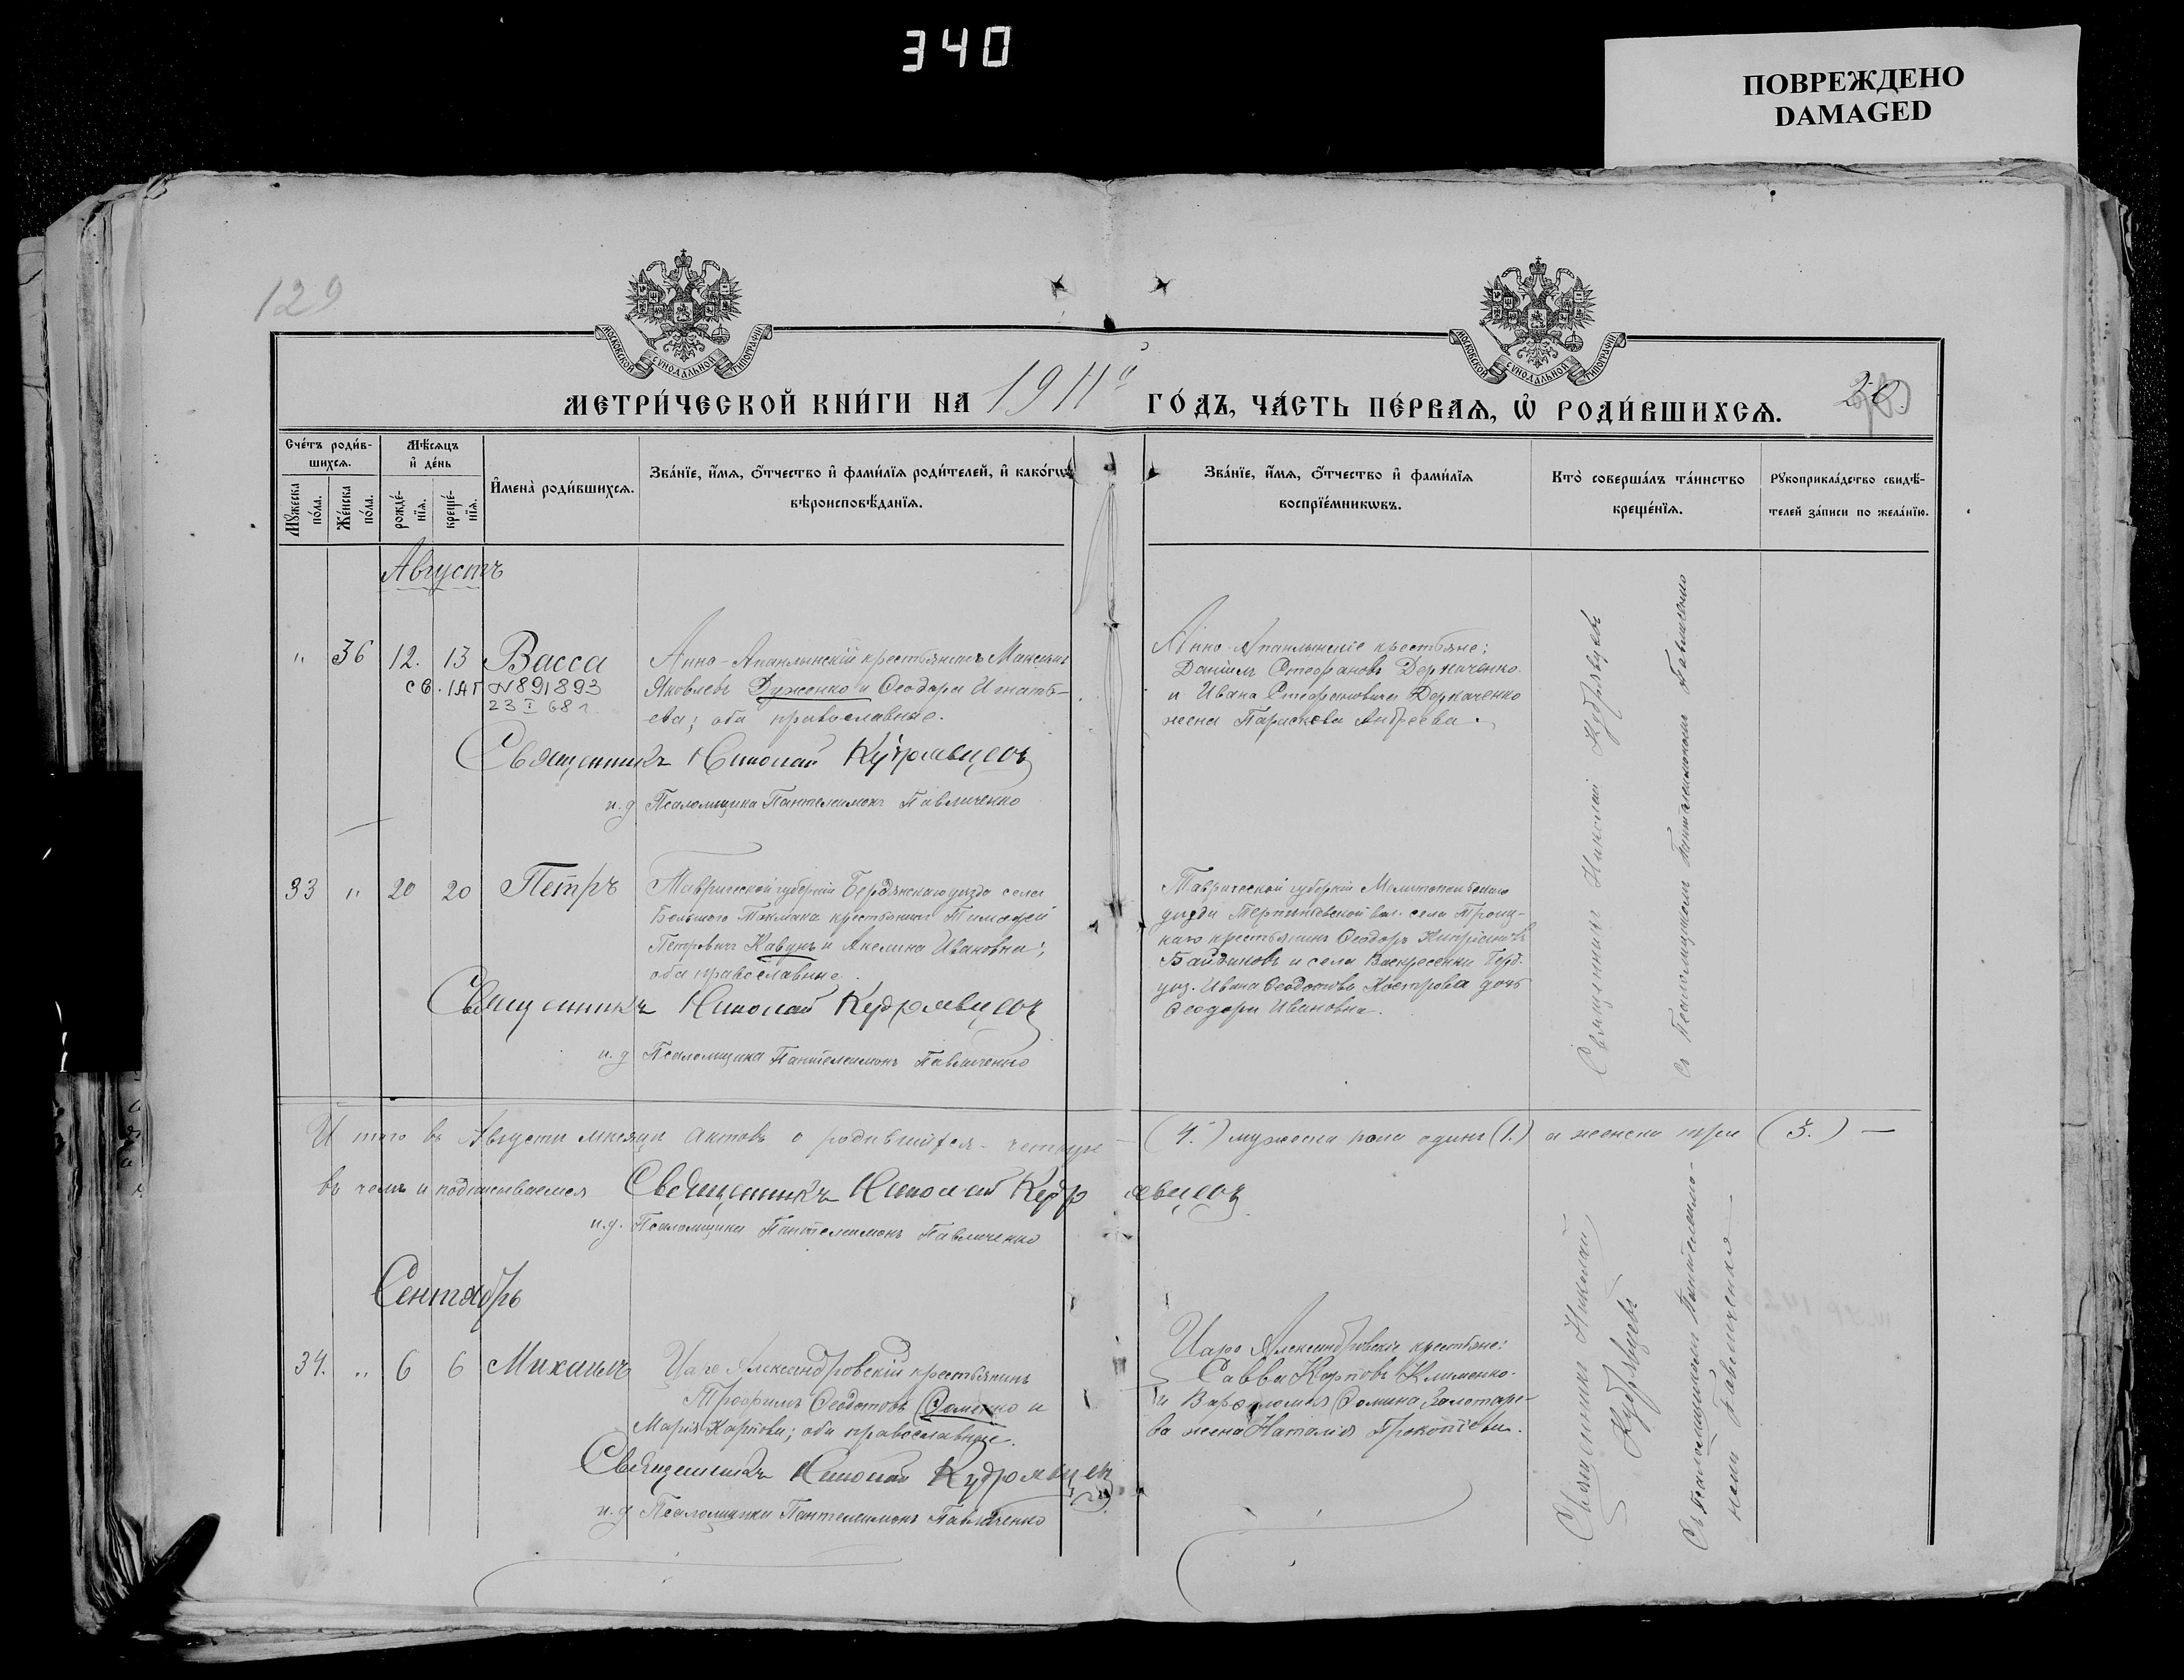 340
ПОВРЕЖДЕНО
DAMAGED
129
МОСКОВСКОЙ СѴНОДАЛЬНОЙ ТИПОГРАФІИ
МОСКОВСКОЙ СѴНОДАЛЬНОЙ ТИПОГРАФІИ
МЕТРИ́ЧЕСКОЙ КНИ́ГИ НА 1911й ГО́ДЪ, ЧА́СТЬ ПЕ́РВАѦ, Ѡ҆ РОДИ́ВШИХСѦ. 20.
Сче́тъ роди́в-
шихсѧ.
Мꙋ́жеска по́ла.
Же́нска по́ла.
Мѣ́сѧцъ
и҆ де́нь
рожде́-
нїѧ.
креще́-
нїѧ.
И҆мена̀ роди́вшихсѧ.
Зва́нїе, и҆́мѧ, о҆́тчество и҆ фами́лїѧ роди́телей, и҆ како́гѡ
вѣроисповѣ́данїѧ.
Зва́нїе, и҆́мѧ, о҆́тчество и҆ фами́лїѧ
воспрїе́мникѡвъ.
Кто̀ соверша́лъ та́инство
креще́нїѧ.
Рꙋкоприкла́дство свидѣ́-
телей за́писи по жела́нїю.
Августъ
" 36 12. 13 Васса
св. IАП №891893
23 I 68 г.
Анно-Апанлинскій крестьянинъ Максимъ
Яковлевъ Дуженко и Ѳеодора Игнать-
ева; оба православные.
Священникъ Николай Кудрявцевъ
и.д Псаломщика Пантелеимонъ Павличенко
Анно-Апанлинскіе крестьяне:
Даніилъ Стефановъ Деркаченко
и Ивана Стефановича Деркаченко
жена Параскева Андреева.
Священникъ Николай Кудрявцевъ
Съ Псаломщикомъ Пантелеимономъ Павличенко
33 " 20 20 Петръ
Таврической губерніи Бердянскаго уѣзда села
Большого Токмака крестьянинъ Тимофей
Петровичъ Кавунъ и Акелина Ивановна;
оба православные.
Священникъ Николай Кудрявцевъ
и.д Псаломщика Пантелеимонъ Павличенко
Таврической губерніи Мелитопольскаго
уѣзда Терпѣніевской вол. села Троиц-
каго крестьянинъ Ѳеодоръ Кипріановъ
Байдиковъ и села Воскресенки Берд.
уѣз. Ивана Ѳеодотова Кострова дочь
Ѳеодора Ивановна.
И того въ Августѣ мѣсяцѣ актовъ о родившихся - четыре (4.) мужеска пола одинъ (1.) а женска три (3.) —
въ чемъ и подписываемся Священникъ Николай Кудрявцевъ
и.д. Псаломщика Пантелеимонъ Павличенко
Сентябрь
34. " 6 6 Михаилъ
Царе Александровскій крестьянинъ
Трофимъ Ѳеодотовъ Фоменко и
Марія Карпова; оба православные.
Священникъ Николай Кудрявцевъ
и.д Псаломщика Пантелеимонъ Павличенко
Царе Александровскіе крестьяне:
Савва Карповъ Клименко
и Варфоломея Фомина Золотаре-
ва жена Наталія Прокопіева.
Священникъ Николай
Кудрявцевъ
Съ Псаломщикомъ Пантелеимо-
номъ Павличенко